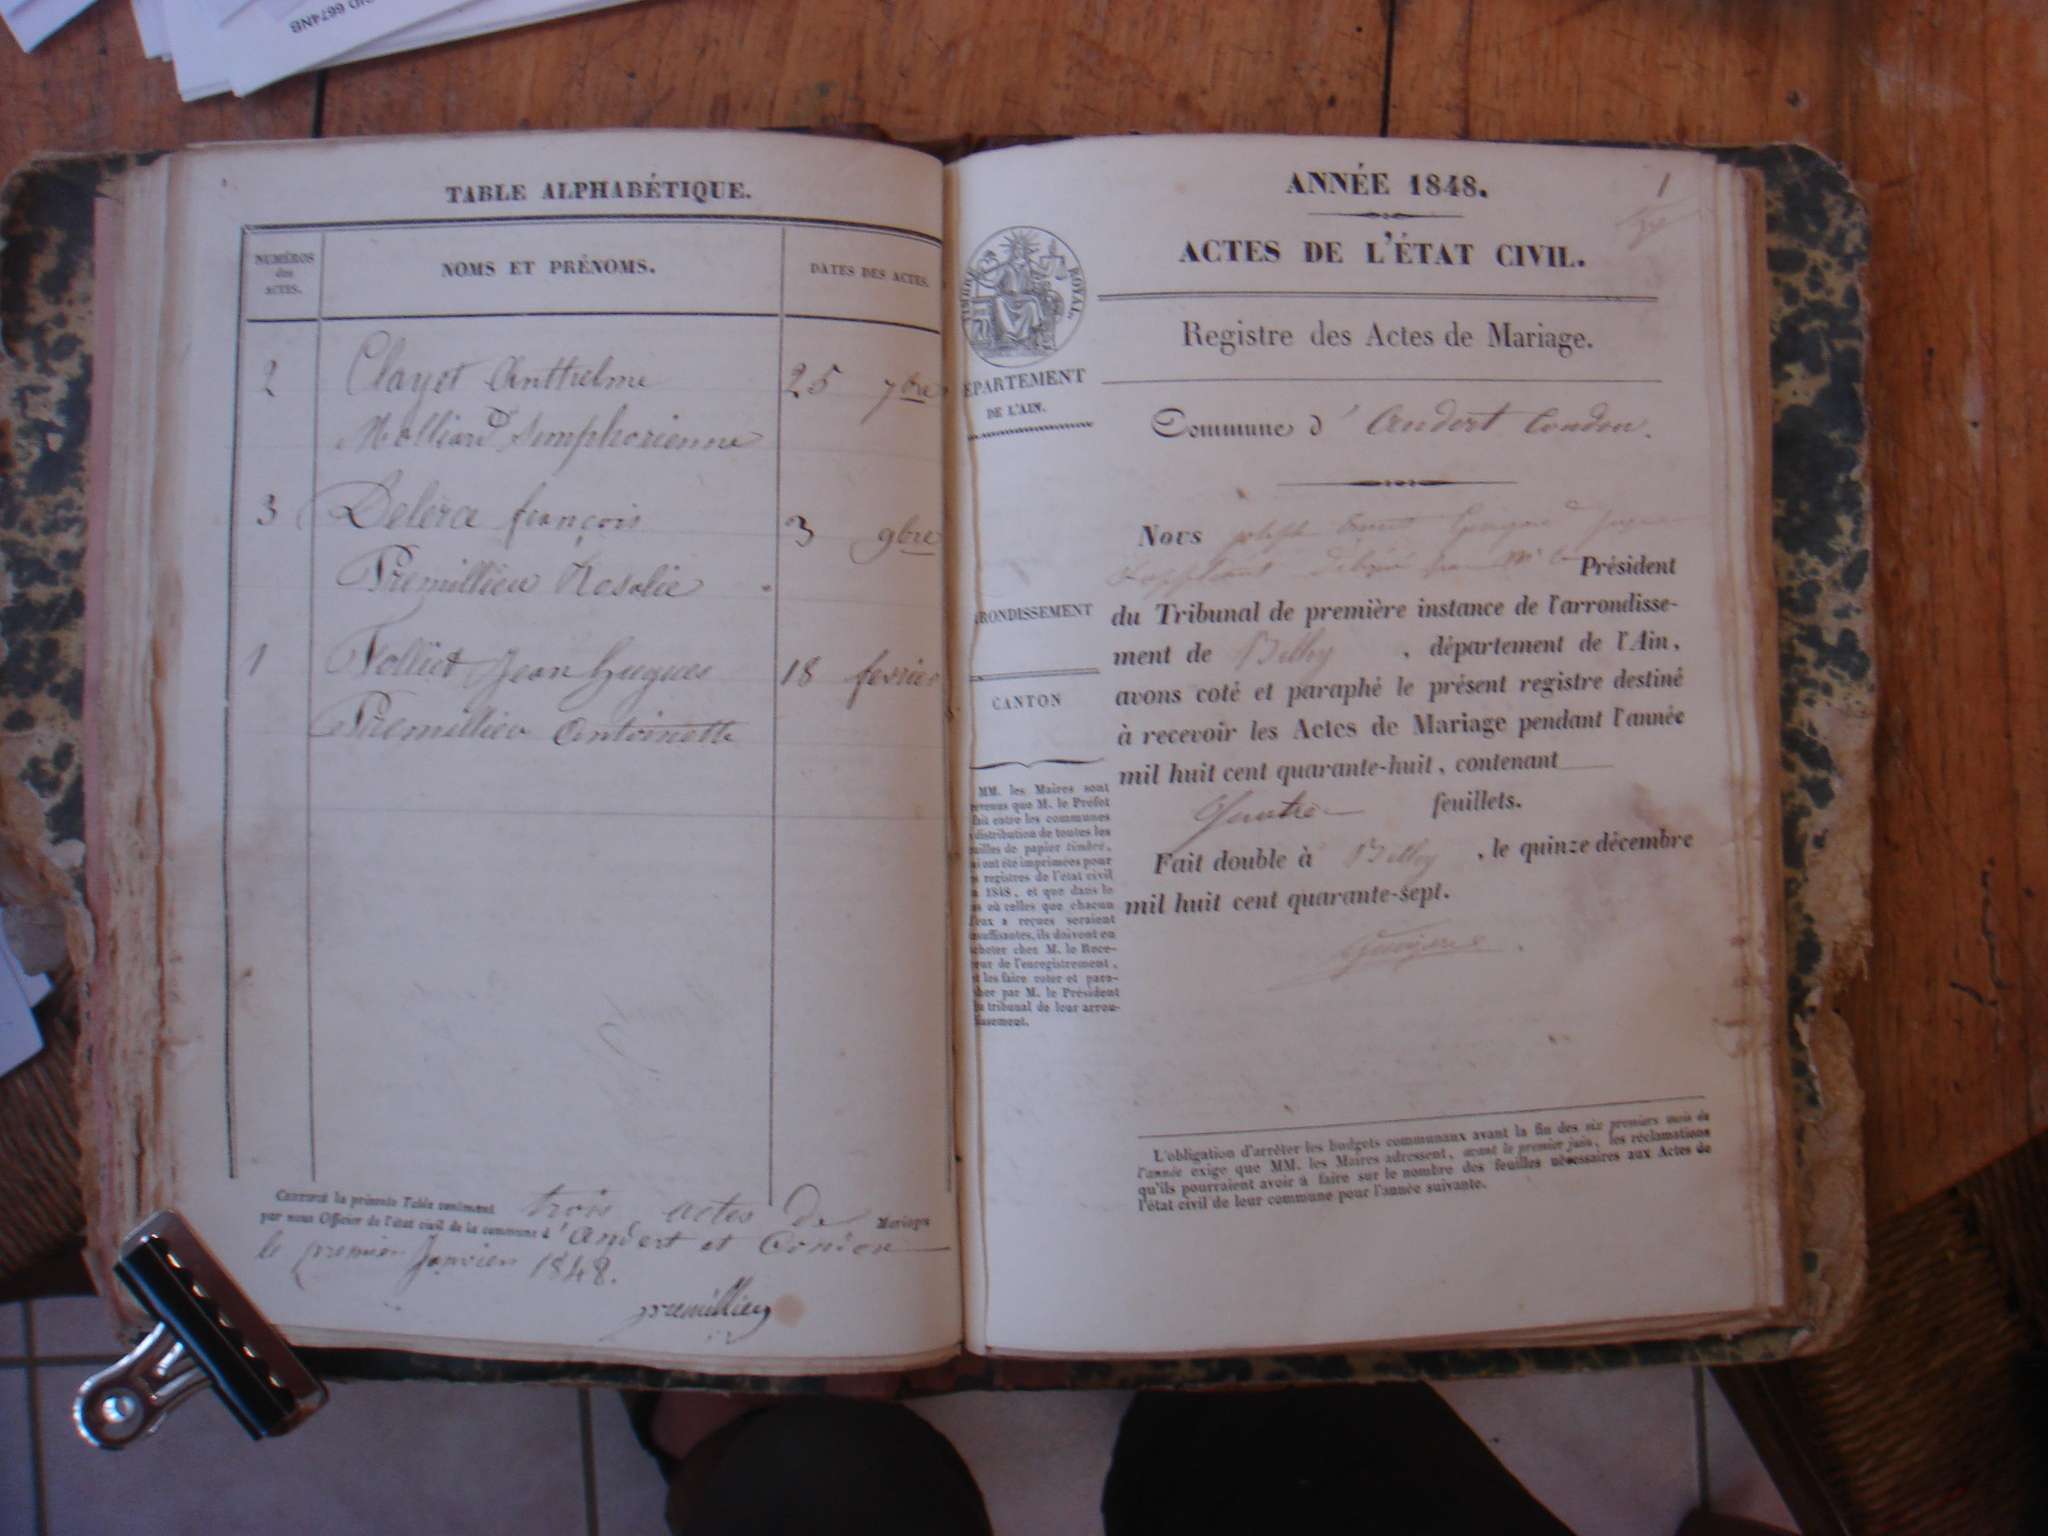 6674NB
TABLE ALPHABÉTIQUE.
NUMÉROS
des
ACTES.
NOMS ET PRÉNOMS.
DATES DES ACTES.
2 Clayet Anthelme 25 7bre
Molliard Simphorienne
3 Delerce françois 3 9bre
Premillieu Rosalie
1 Folliet Jean hugues 18 fevrier
Premillieu Antoinette
CERTIFIÉ la présente Table contenant trois actes de Mariage
par nous Officier de l'état civil de la commune d'Andert et Condon
le premier Janvier 1848.
premillieu
1
ANNÉE 1848.
ACTES DE L'ÉTAT CIVIL.
TIMBRE ROYAL.
Registre des Actes de Mariage.
DÉPARTEMENT
DE L'AIN.
Commune d'Andert Condon.
Nous joseph
Suppléant délégué par Mr Président
RONDISSEMENT
du Tribunal de première instance de l'arrondisse-
ment de Belley, département de l'Ain,
CANTON
avons coté et paraphé le présent registre destiné
à recevoir les Actes de Mariage pendant l'année
mil huit cent quarante-huit, contenant
Quatre feuillets.
Fait double à Belley, le quinze décembre
mil huit cent quarante-sept.
MM. les Maires sont
evenus que M. le Préfet
fait entre les communes
distribution de toutes les
uilles de papier timbré,
ui ont été imprimées pour
s registres de l'état civil
1848, et que dans le
s où celles que chacun
eux a reçues seraient
suffisantes, ils doivent en
cheter chez M. le Rece-
eur de l'enregistrement,
t les faire coter et para-
her par M. le Président
u tribunal de leur arron-
issement.
L'obligation d'arrêter les budgets communaux avant la fin des six premiers mois de
l'année exige que MM. les Maires adressent, avant le premier juin, les réclamations
qu'ils pourraient avoir à faire sur le nombre des feuilles nécessaires aux Actes de
l'état civil de leur commune pour l'année suivante.